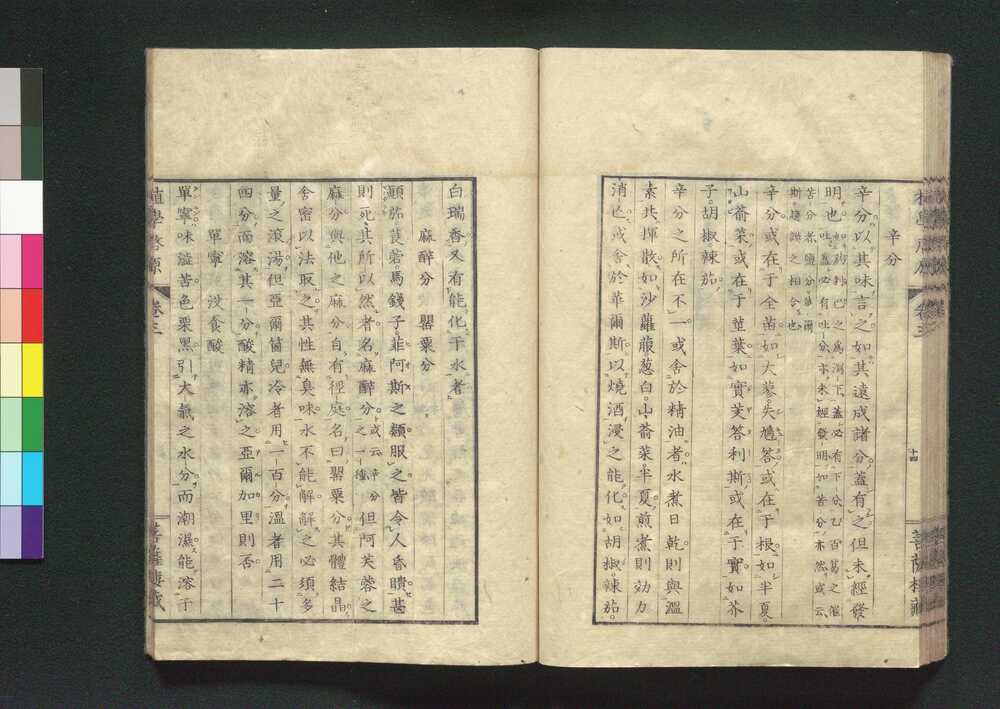 辛分
辛分以其味言之如其遠成諸分蓋有之但未經發
明也
辛分或在于全苗如大蓼失鳩答或在于根如半夏
山葵菜或在于莖葉如實芰答利斯或在于實如芥
子胡椒辣茄
辛分之所在不一或舍於精油者水煮日乾則與溫
素共揮散如沙蘿蔔葱白山葵菜半夏煎煮則効力
消亡或舍於華爾斯以燒酒浸之能化如胡椒辣茄
十四
菩薩樓藏
白瑞香又有能化于水者
麻醉分 罌粟分
顛茄莨菪馬錢子菲阿斯之類服之皆令人昏瞶甚
則死其所以然者名麻醉分或云辛分之一種但阿芙蓉之
麻分與他之麻分自有徑庭名曰罌粟分其體結晶
舍密以法取之其性無臭味水不能解解之必須多
量之滾湯但亞爾箇兒冷者用一百分溫者用二十
四分而溶其一分酸精亦溶之亞爾加里則否
單寧 沒食酸
單寧味澁苦色栗黑引大氣之水分而潮濕能溶于
植學啓原 卷三
菩薩樓藏